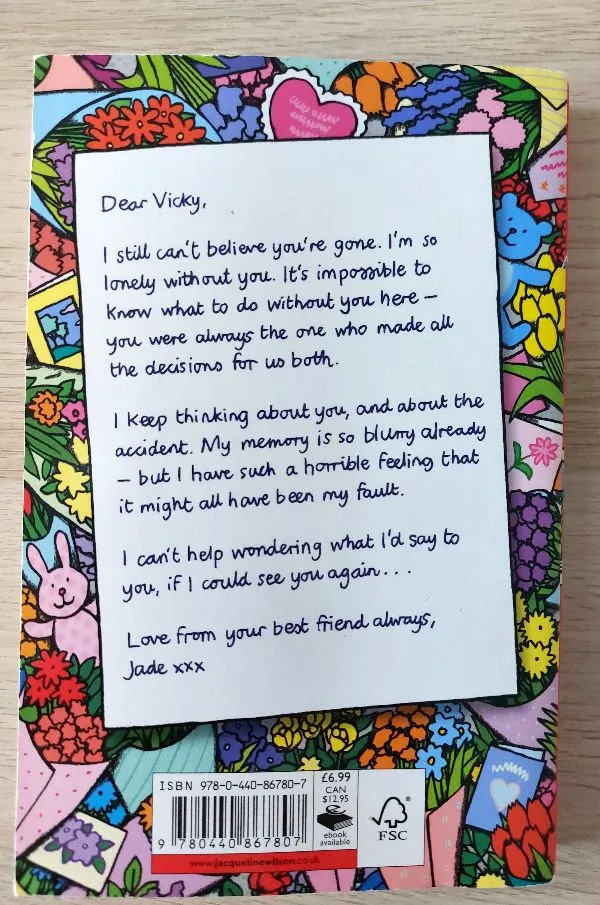 Dear Vicky,
I still can't believe you're gone. I'm so
lonely without you. It's impossible to
know what to do without you here –
you were always the one who made all
the decisions for us both.
I keep thinking about you, and about the
accident. My memory is so blurry already
– but I have such a horrible feeling that
it might all have been my fault.
I can't help wondering what I'd say to
you, if I could see you again...
Love from your best friend always,
Jade xxx
ISBN 978-0-440-86780-7
£6.99
CAN
$12.95
ebook
available
FSC
9 780440 867807
www.jacquelinewilson.co.uk